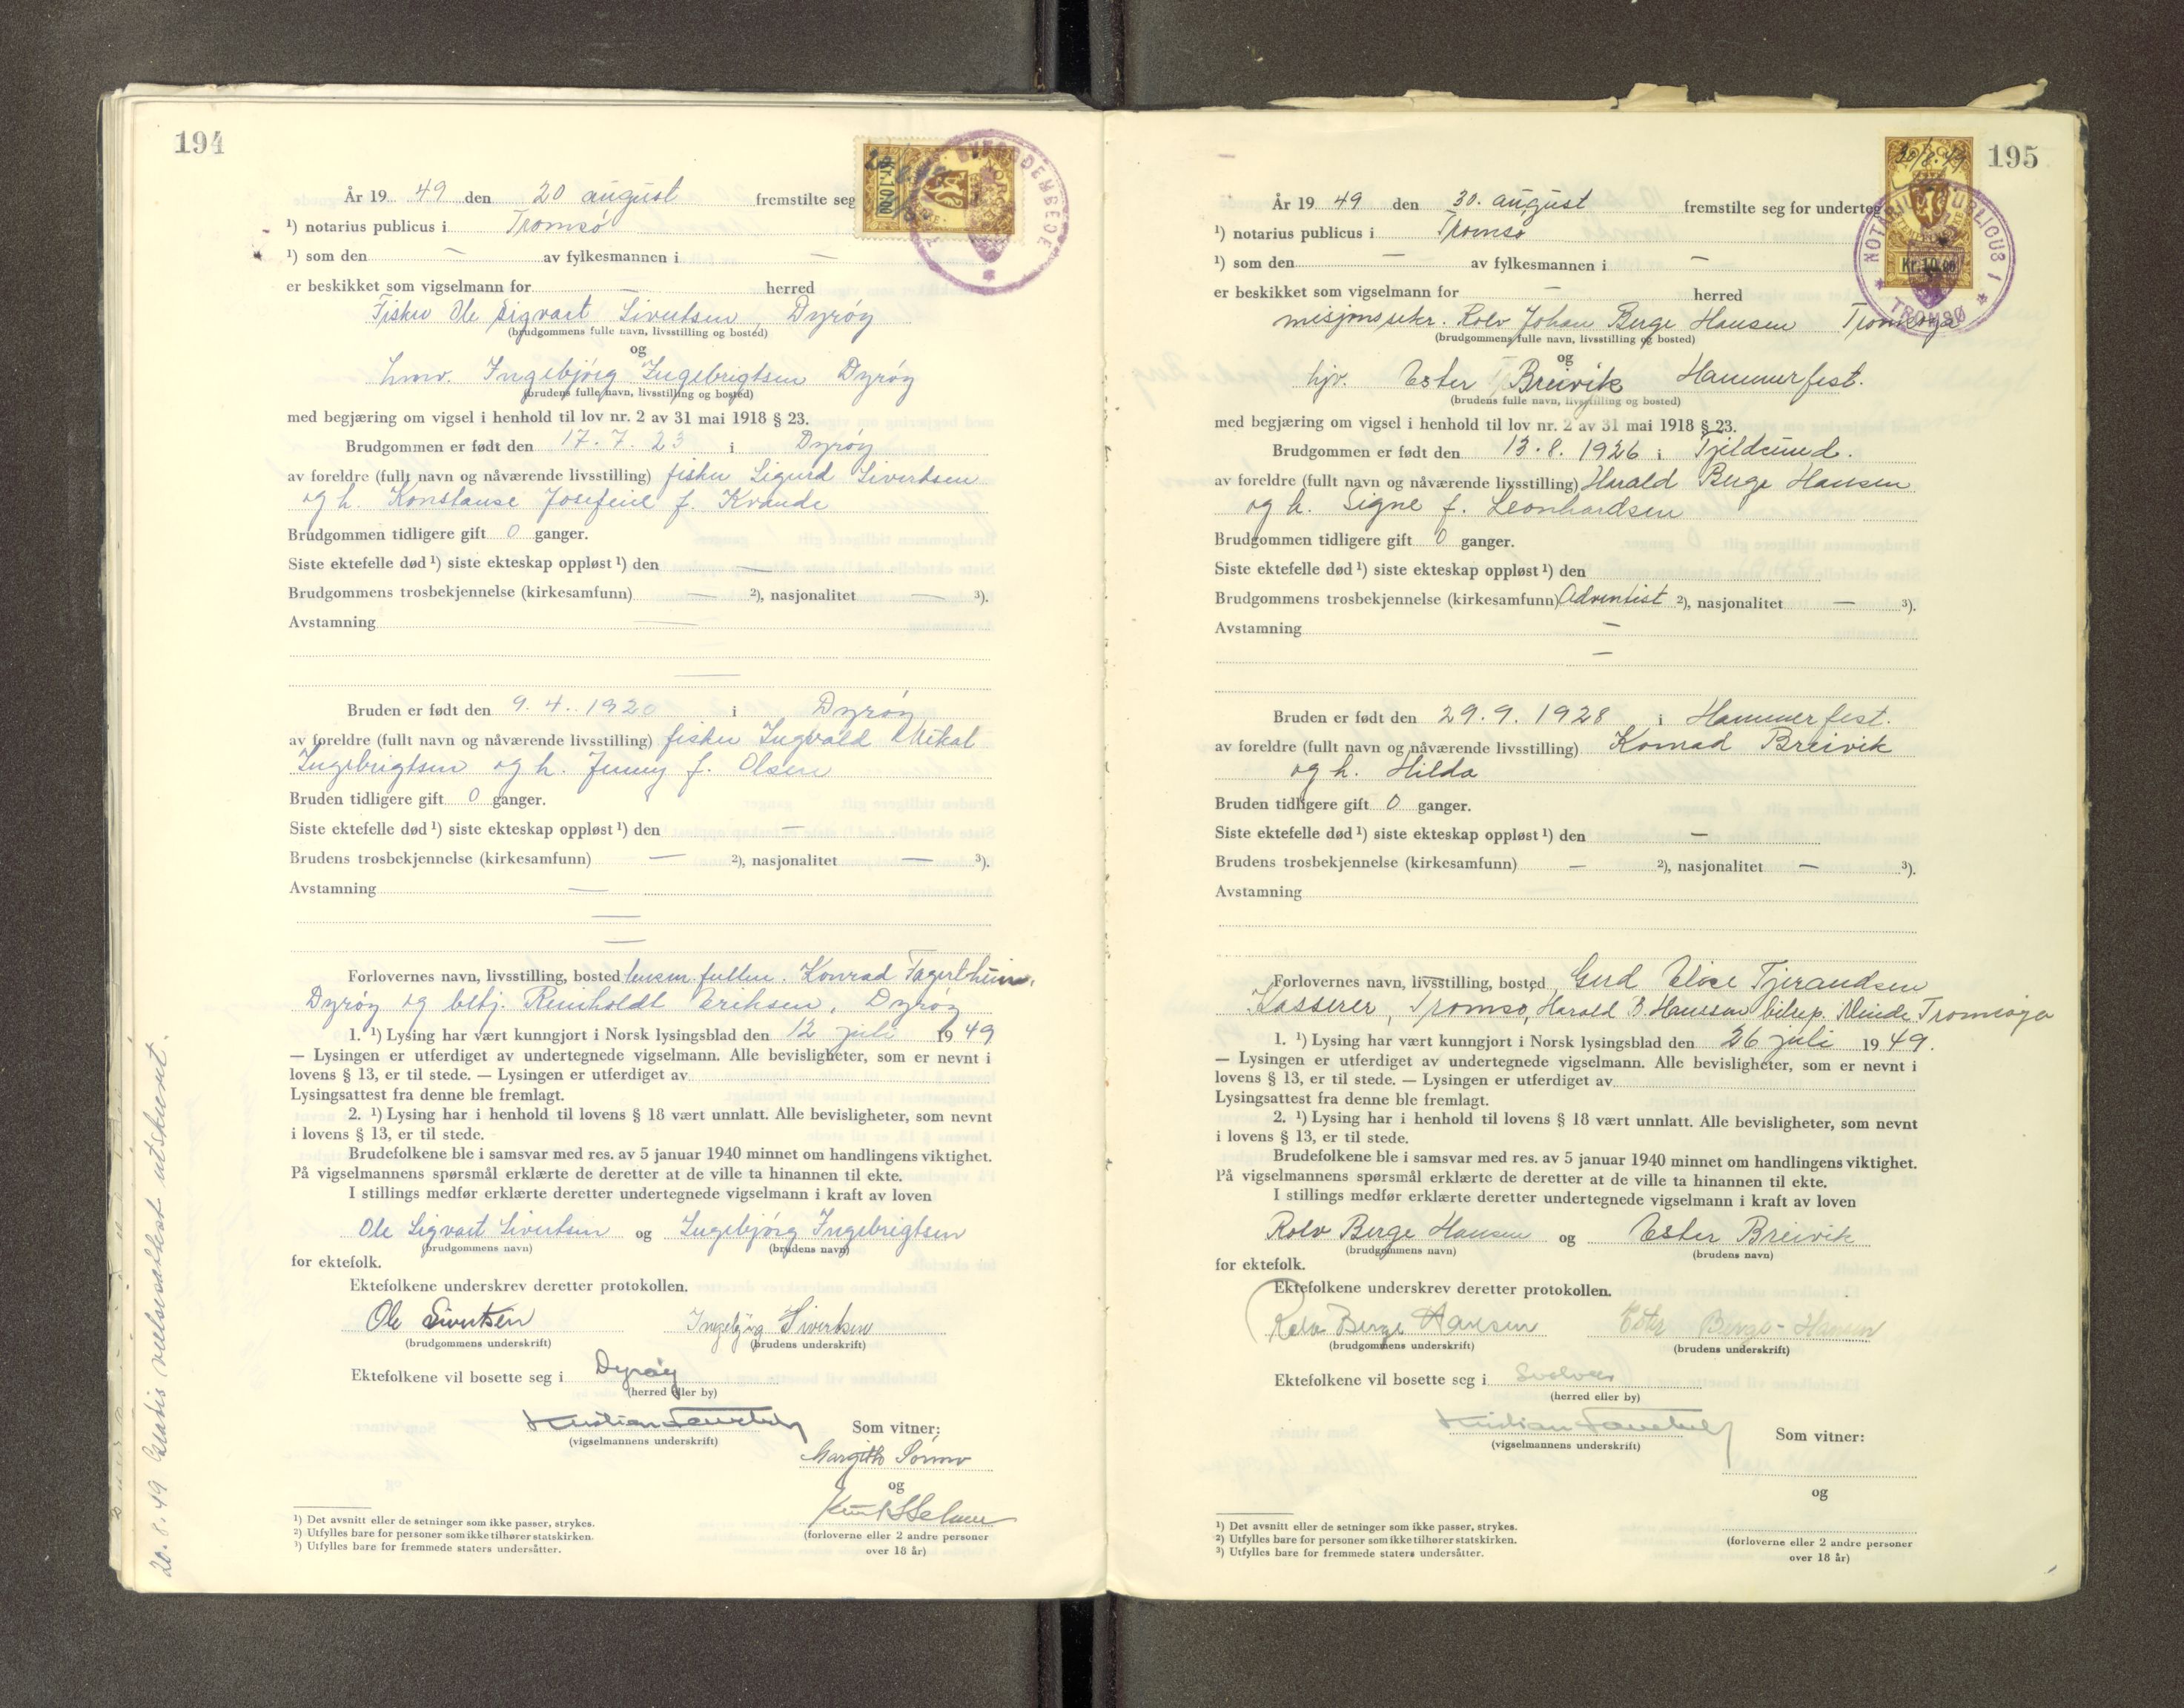 194
År 19 49 den 20 august fremstilte seg
¹) notarius publicus i Tromsø
¹) som den — av fylkesmannen i —
er beskikket som vigselmann for — herred
Fisker Ole Sigvart Sivertsen, Dyrøy
(brudgommens fulle navn, livsstilling og bosted)
og
hmv. Ingebjørg Ingebrigtsen Dyrøy
(brudens fulle navn, livsstilling og bosted)
med begjæring om vigsel i henhold til lov nr. 2 av 31 mai 1918 § 23.
Brudgommen er født den 17.7.23 i Dyrøy
av foreldre (fullt navn og nåværende livsstilling) fisker Sigurd Sivertsen
og h. Konstanse Josefine f. Kvande
Brudgommen tidligere gift 0 ganger.
Siste ektefelle død ¹) siste ekteskap oppløst ¹) den —
Brudgommens trosbekjennelse (kirkesamfunn) — ²), nasjonalitet — ³).
Avstamning —
—
Bruden er født den 9.4.1920 i Dyrøy
av foreldre (fullt navn og nåværende livsstilling) fisker Ingvald Mikal
Ingebrigtsen og h. Jenny f. Olsen
Bruden tidligere gift 0 ganger.
Siste ektefelle død ¹) siste ekteskap oppløst ¹) den —
Brudens trosbekjennelse (kirkesamfunn) — ²), nasjonalitet — ³).
Avstamning —
—
—
Forlovernes navn, livsstilling, bosted Konrad Fagerheim,
Dyrøy og Reinholdt Eriksen, Dyrøy
1. ¹) Lysing har vært kunngjort i Norsk lysingsblad den 12 juli 1949
— Lysingen er utferdiget av undertegnede vigselmann. Alle bevisligheter, som er nevnt i
lovens § 13, er til stede. — Lysingen er utferdiget av
Lysingsattest fra denne ble fremlagt.
2. ¹) Lysing har i henhold til lovens § 18 vært unnlatt. Alle bevisligheter, som nevnt
i lovens § 13, er til stede.
Brudefolkene ble i samsvar med res. av 5 januar 1940 minnet om handlingens viktighet.
På vigselmannens spørsmål erklærte de deretter at de ville ta hinannen til ekte.
I stillings medfør erklærte deretter undertegnede vigselmann i kraft av loven
Ole Sigvart Sivertsen og Ingebjørg Ingebrigtsen
(brudgommens navn) (brudens navn)
for ektefolk.
Ektefolkene underskrev deretter protokollen.
Ole Sivertsen Ingebjørg Sivertsen
(brudgommens underskrift) (brudens underskrift)
Ektefolkene vil bosette seg i Dyrøy
(herred eller by)
(vigselmannens underskrift) Som vitner:
og
(forloverne eller 2 andre personer
over 18 år)
¹) Det avsnitt eller de setninger som ikke passer, strykes.
²) Utfylles bare for personer som ikke tilhører statskirken.
³) Utfylles bare for fremmede staters undersåtter.
20.8.49
195
30/8.49
NOTARIUS PUBLICUS I TROMSØ
Kr. 10.00
År 19 49 den 30. august fremstilte seg for underteg
¹) notarius publicus i Tromsø
¹) som den — av fylkesmannen i —
er beskikket som vigselmann for — herred
misjonssekr. Rolv Johan Berge Hansen Tromsøya
(brudgommens fulle navn, livsstilling og bosted)
og
hjv. Ester Breivik Hammerfest.
(brudens fulle navn, livsstilling og bosted)
med begjæring om vigsel i henhold til lov nr. 2 av 31 mai 1918 § 23.
Brudgommen er født den 13.8.1926 i Tjeldsund.
av foreldre (fullt navn og nåværende livsstilling) Harald Berge Hansen
og h. Signe f. Leonhardsen
Brudgommen tidligere gift 0 ganger.
Siste ektefelle død ¹) siste ekteskap oppløst ¹) den
Brudgommens trosbekjennelse (kirkesamfunn) Adventist ²), nasjonalitet — ³).
Avstamning —
—
Bruden er født den 29.9.1928 i Hammerfest.
av foreldre (fullt navn og nåværende livsstilling) Konrad Breivik
og h. Hilda
Bruden tidligere gift 0 ganger.
Siste ektefelle død ¹) siste ekteskap oppløst ¹) den —
Brudens trosbekjennelse (kirkesamfunn) — ²), nasjonalitet — ³).
Avstamning
Forlovernes navn, livsstilling, bosted Gerd Tjerandsen
Kasserer, Tromsø, Harald B. Hansen Tromsøya
1. ¹) Lysing har vært kunngjort i Norsk lysingsblad den 26 juli 1949.
— Lysingen er utferdiget av undertegnede vigselmann. Alle bevisligheter, som er nevnt i
lovens § 13, er til stede. — Lysingen er utferdiget av
Lysingsattest fra denne ble fremlagt.
2. ¹) Lysing har i henhold til lovens § 18 vært unnlatt. Alle bevisligheter, som nevnt
i lovens § 13, er til stede.
Brudefolkene ble i samsvar med res. av 5 januar 1940 minnet om handlingens viktighet.
På vigselmannens spørsmål erklærte de deretter at de ville ta hinannen til ekte.
I stillings medfør erklærte deretter undertegnede vigselmann i kraft av loven
Rolv Berge Hansen og Ester Breivik
(brudgommens navn) (brudens navn)
for ektefolk.
Ektefolkene underskrev deretter protokollen.
Rolv Berge Hansen Ester Berge-Hansen
(brudgommens underskrift) (brudens underskrift)
Ektefolkene vil bosette seg i Svolvær
(herred eller by)
(vigselmannens underskrift) Som vitner:
og
(forloverne eller 2 andre personer
over 18 år)
¹) Det avsnitt eller de setninger som ikke passer, strykes.
²) Utfylles bare for personer som ikke tilhører statskirken.
³) Utfylles bare for fremmede staters undersåtter.